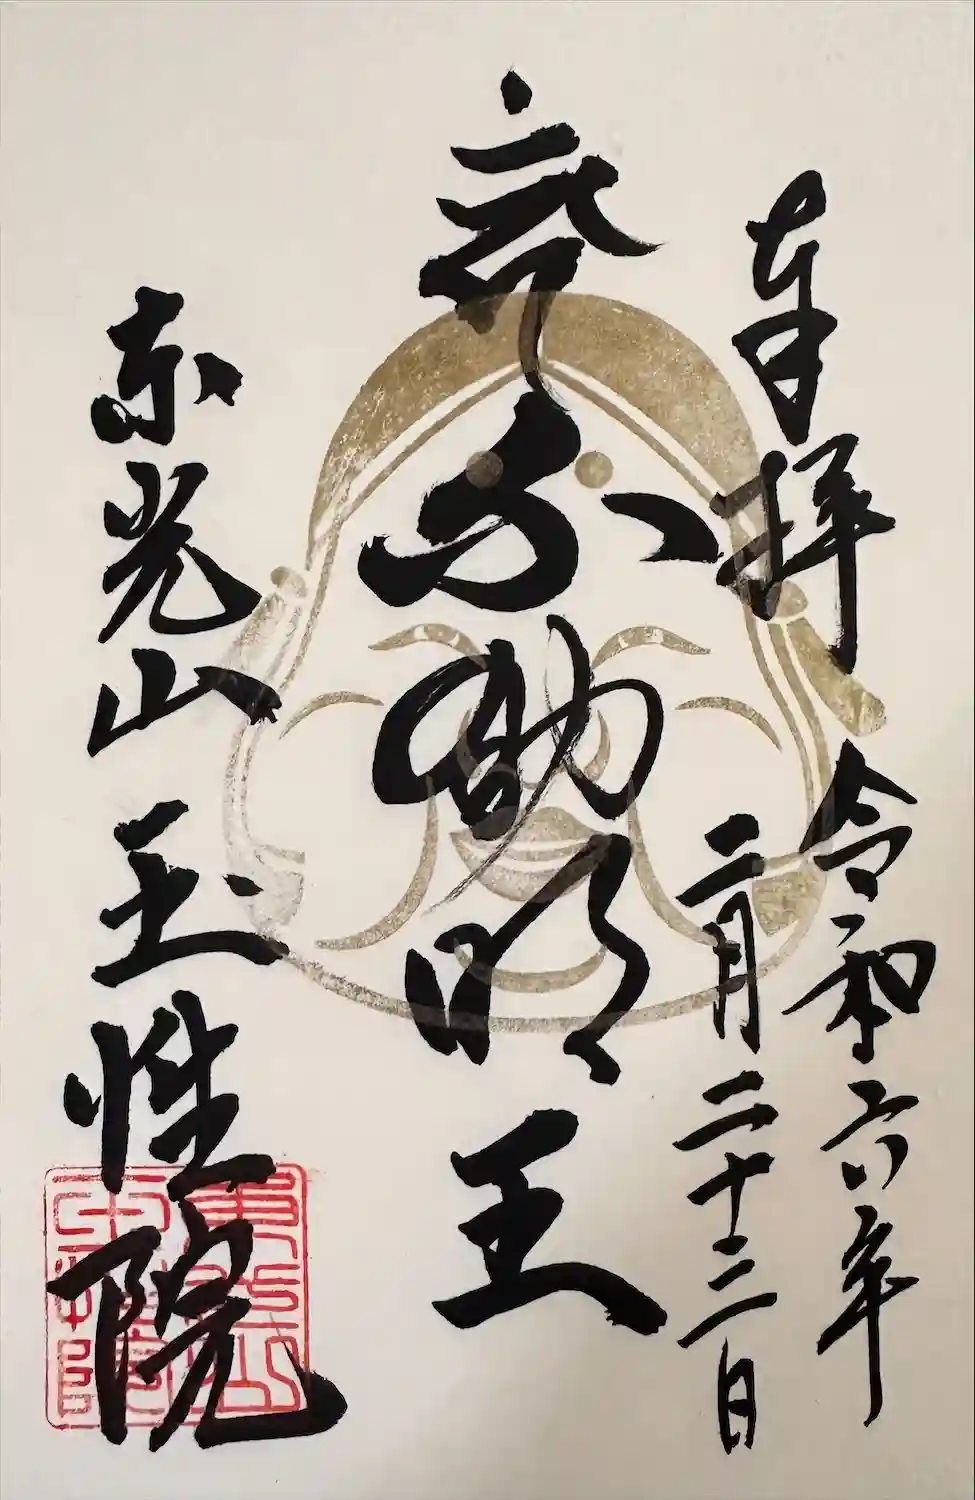 奉拝
令和六年
二月二十三日
不動明王
東光山 玉性院